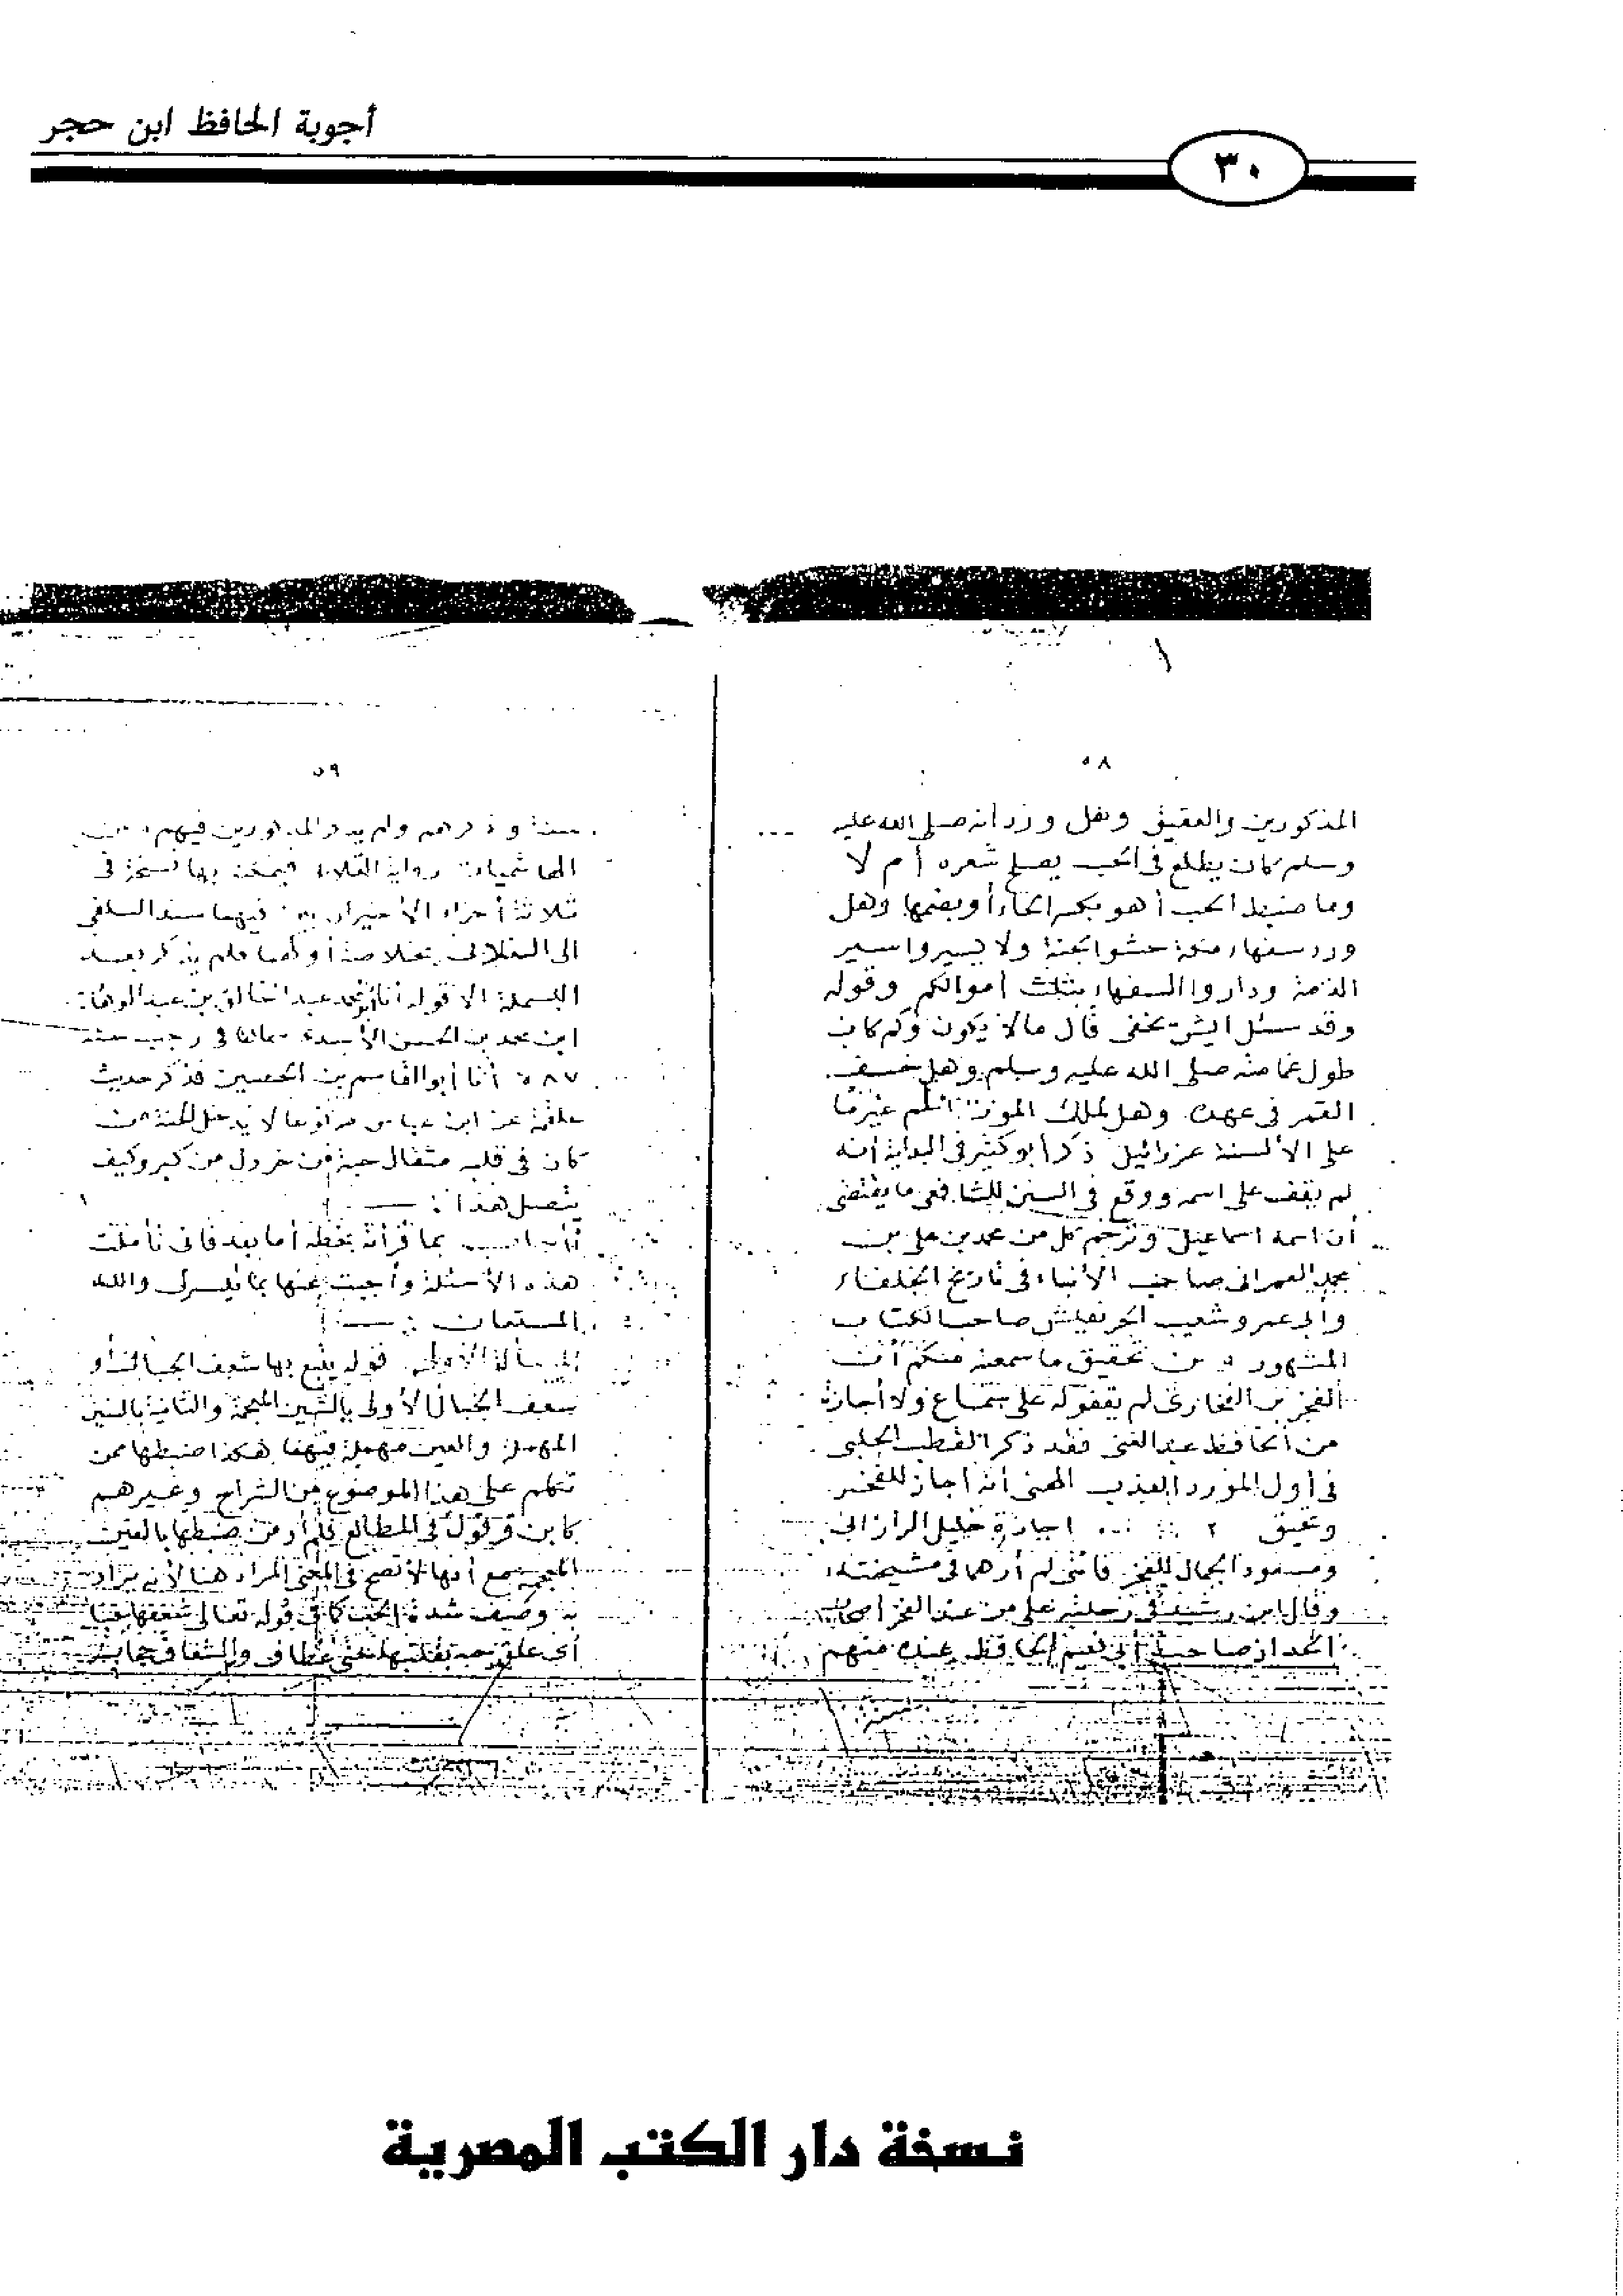 أجوبة الحافظ ابن حجر
٣٠
٥٨
المذكورين والعقيق وهل ورد انه صلى الله عليه
وسلم كان يطلع في الحب يصلح شعره أم لا
وما ضبط الحب أهو بكسر الحاء أو بضمها وهل
ورد سفهاء مكة حشو الجنة ولا
الذمة وداروا السفهاء بثلث أموالكم وقوله
وقد سئل قال مالا يكون وكم كان
طول عمامته صلى الله عليه وسلم وهل خسف
القمر في عهده وهل لملك الموت اسم غير ما
على الألسنة عزرائيل ذكر أبو كثير في البداية أنه
لم يقف على اسمه ووقع في السنن للشافعي ما يقتضي
أن اسمه اسماعيل وترجم كل من محمد بن علي بن
محمد العمراني صاحب الأنباء في تاريخ الخلفاء
وأبي عمرو شعيب الحريفيش صاحب الكتاب
المشهور و من تحقيق ما سمعته منكم أن
الفخر بن البخاري لم يقفوا له على سماع ولا أجازة
من الحافظ عبد الغني فقد ذكر القطب الحلبي
في أول المورد العذب الهني أنه أجاز للفخر
اجازة خليل الرازاني
ومسعود الجمال للفخر فانني لم أرهما في مشيخته
وقال ابن رشيد في رحلته على من عند الفخر أصحاب
الحداد صاحب أبي نعيم الحافظ عنده منهم
٥٩
ستة و ذكرهم ولم يذكر المذكورين فيهم و من
الهاشميات رواية نسخة في
ثلاثة أجزاء الأخيران فيهما سند السلفي
الى بخلاف أولهما فلم يذكر بعد
البسملة الا قوله أنا أبو محمد عبد الخالق بن عبد الوهاب
ابن محمد بن الحسن في رجب سنة
٥٨٧ أنا أبو القاسم بن الحصين فذكر حديث
علقمة عن ابن عباس مرفوعا لا يدخل الجنة من
كان في قلبه مثقال حبة من خردل من كبر وكيف
يتصل هذا
فأجاب بما قرأته بخطه أما بعد فاني تأملت
هذه الأسئلة وأجبت عنها بما تيسر لي والله
المستعان
المسألة الأولى قوله يتبع بها شعف الجبال أو
سعف الجبال الأولى بالشين المعجمة والثانية بالسين
المهملة والعين مهملة فيهما هكذا ضبطها من
تكلم على هذا الموضوع من الشراح وغيرهم
كابن قرقول في المطالع فلم أر من ضبطها بالغين
المعجمة مع أنها لا تصح في المعنى المراد هنا لأنه يراد
به وصف شدة الحب كما في قوله تعالى شغفها حبا
أي علق حبه بقلبها
نسخة دار الكتب المصرية